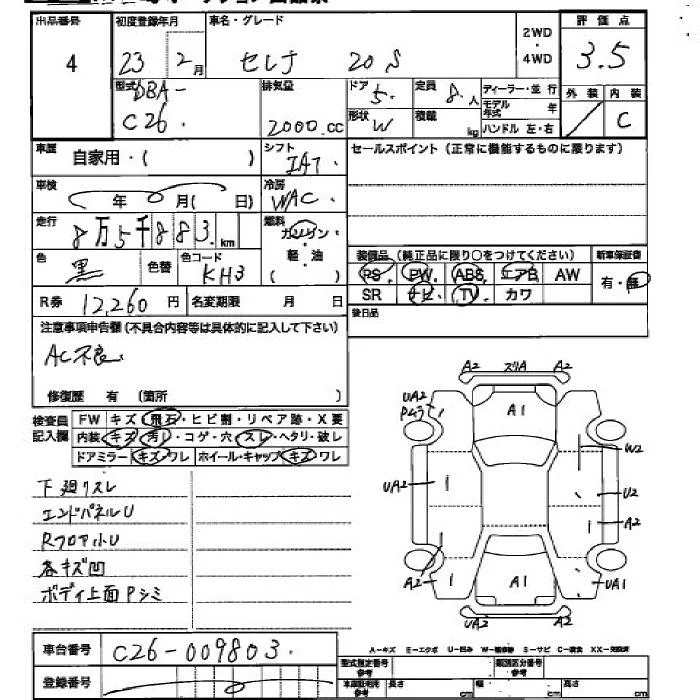 出品番号 初度登録年月 車名・グレード 2WD・4WD 評価点
4 23 2月 セレナ 20S 3.5
型式 DBA- 排気量 ドア 5. 定員 8.人 ディーラー・並行 外装 内装
C26. 2000.cc 形状 W 積載 kg モデル年式 年 ハンドル 左・右 C
車歴 自家用・( ) シフト IAT. セールスポイント(正常に機能するものに限ります)
車検 年 月( 日) 冷房 WAC.
走行 8万5千883.km 燃料 ガソリン・軽・油 ( )
装備品(純正品に限り○をつけてください) 新車保証書
色 黒 色替 色コード KH3 PS PW ABS エアB AW 有・無
R券 12,260円 名変期限 月 日 SR ナビ TV カワ
注意事項申告欄(不具合内容等は具体的に記入して下さい) 後日品
AC不良
修復歴 有 〔箇所 〕
検査員記入欄 FW キズ・飛石・ヒビ割・リペア跡・X要
内装 キズ・汚レ・コゲ・穴・スレ・ヘタリ・破レ
ドアミラー キズ・ワレ ホイール・キャップ キズ・ワレ
下廻リスレ
エンドパネルU
Rフロア小U
各キズ凹
ボディ上面Pシミ
A2 スリA A2
UA2
A1
W2
UA2
U2
A2
A2
A1
UA1
UA2 A2
車台番号 C26-009803.
A-キズ E-エクボ U-凹み W-補修跡 S-サビ C-腐食 XX-交換済
登録番号
型式指定番号 参考 類別区分番号 参考
参考 長さ cm 幅 cm 高さ cm